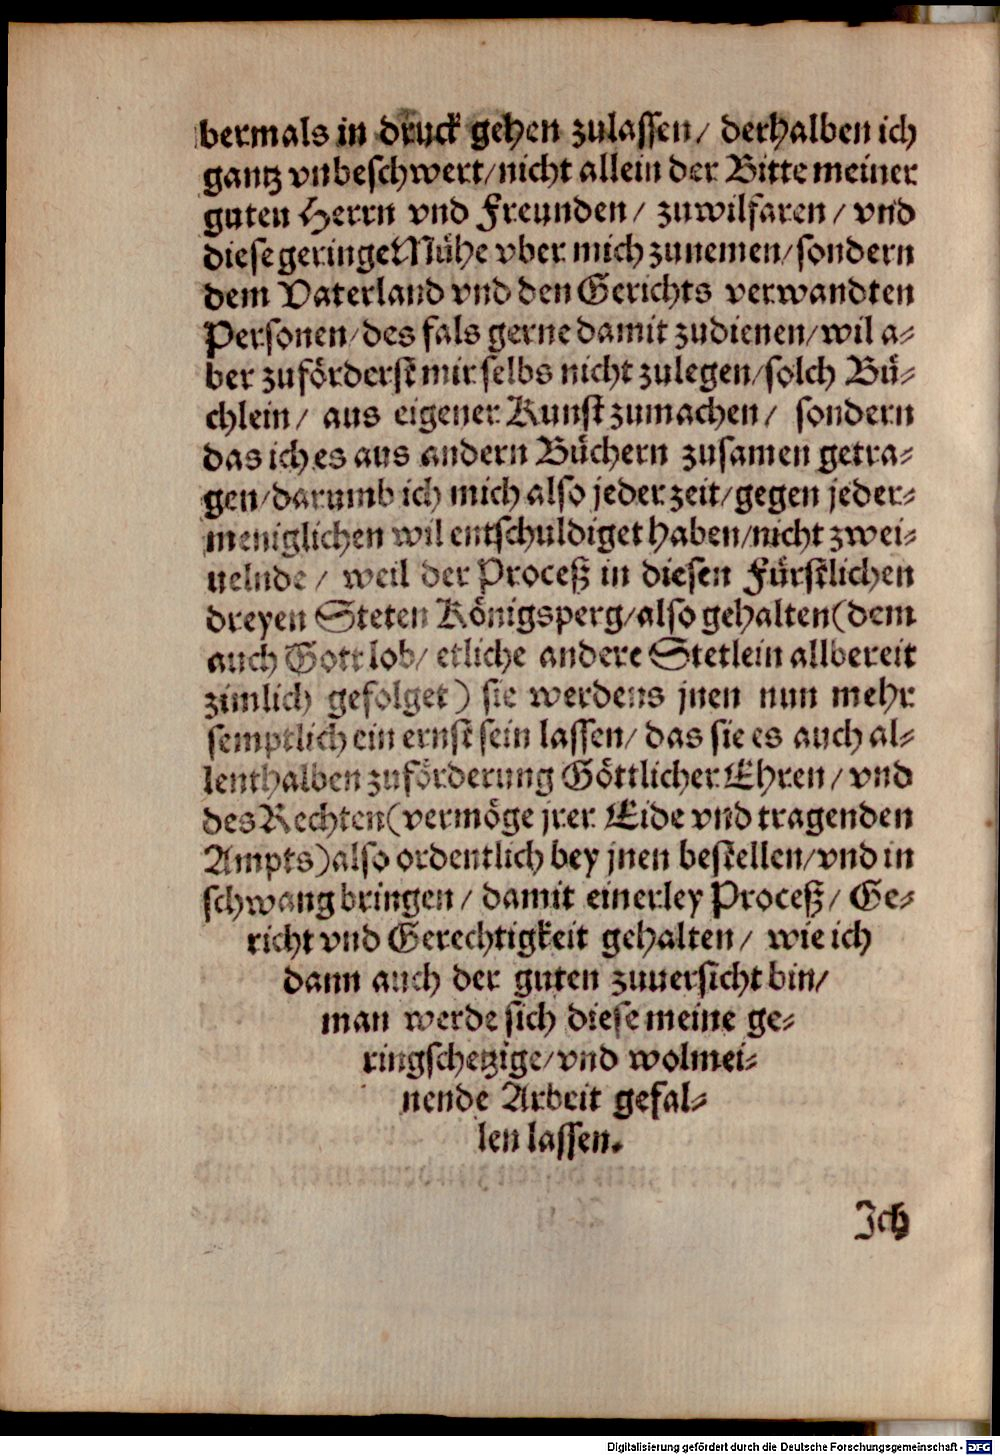 bermals in druck gehen zulassen/ derhalben ich
gantz vnbeschwert/nicht allein der Bitte meiner
guten Herrn vnd Freunden/ zuwilfaren/ vnd
diese geringe Mühe vber mich zunemen/sondern
dem Vaterland vnd den Gerichts verwandten
Personen/des fals gerne damit zudienen/wil a-
ber zuförderst mir selbs nicht zulegen/solch Bü-
chlein/ aus eigener Kunst zumachen/ sondern
das ich es aus andern Büchern zusamen getra-
gen/darumb ich mich also jeder zeit/gegen jeder-
meniglichen wil entschuldiget haben/nicht zwei-
uelnde/ weil der Proceß in diesen Fürstlichen
dreyen Steten Königsperg/also gehalten(dem
auch Gott lob/ etliche andere Stetlein allbereit
zimlich gefolget) sie werdens jnen nun mehr
semptlich ein ernst sein lassen/ das sie es auch al-
lenthalben zuförderung Göttlicher Ehren/ vnd
des Rechten(vermöge jrer Eide vnd tragenden
Ampts)also ordentlich bey jnen bestellen/vnd in
schwang bringen/ damit einerley Proceß/ Ge-
richt vnd Gerechtigkeit gehalten/ wie ich
dann auch der guten zuuersicht bin/
man werde sich diese meine ge-
ringschetzige/vnd wolmei-
nende Arbeit gefal-
len lassen.
Ich
Digitalisierung gefördert durch die Deutsche Forschungsgemeinschaft - DFG